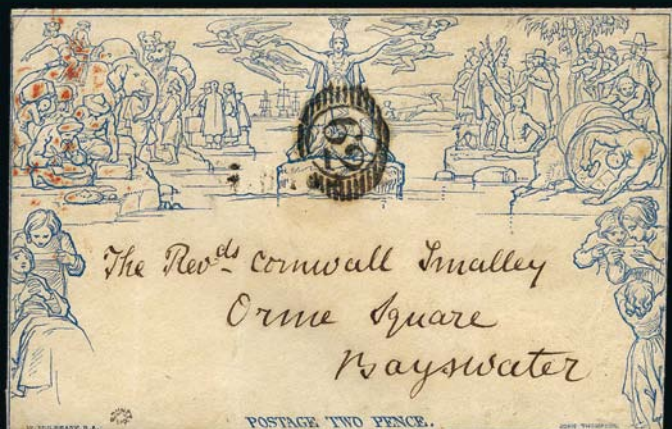 62
The Revds Cornwall Smalley
Orme Square
Bayswater
W. MULREADY, R.A.
POSTAGE TWO PENCE.
JOHN THOMPSON